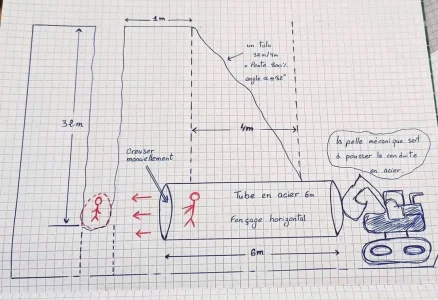 1m
un talu
32m/4m
= Pente 800%
angle α = 82°
32m
4m
Creuser
manuellement
la pelle mécanique sert
à pousser la conduite
en acier
Tube en acier 6m
Fonçage horizontal
6m